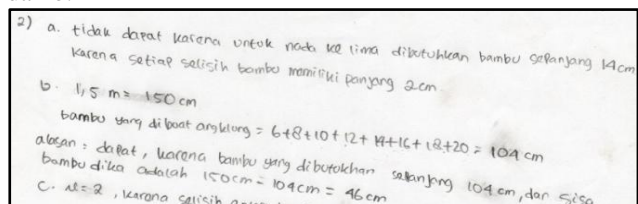 2) a. tidak dapat karena untuk nada ke lima dibutuhkan bambu sepanjang 14cm
karena setiap selisih bambu memiliki panjang 2cm
b. 1,5 m = 150 cm
bambu yang dibuat angklung = 6+8+10+12+14+16+18+20 = 104 cm
alasan : dapat, karena bambu yang dibutuhkan sepanjang 104 cm, dan sisa
bambu dika adalah 150cm - 104cm = 46 cm
c. = 2, karena selisih